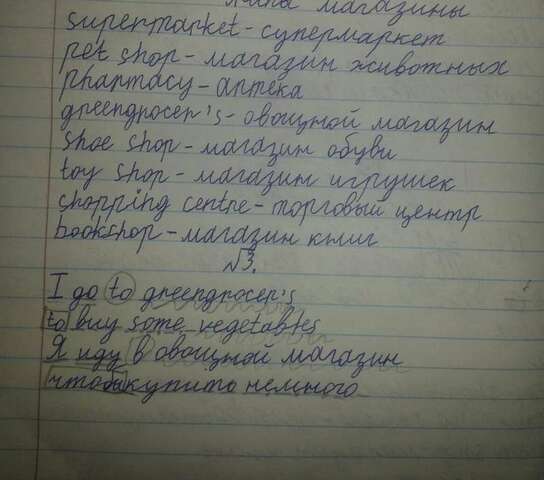 магазины
supermarket-супермаркет
pet shop-магазин животных
pharmacy-аптека
greengrocer's-овощной магазин
shoe shop-магазин обуви
toy shop-магазин игрушек
shopping centre-торговый центр
bookshop-магазин книг
√3.
I go to greengrocer's
to buy some vegetables
Я иду в овощной магазин
чтобы купить немного